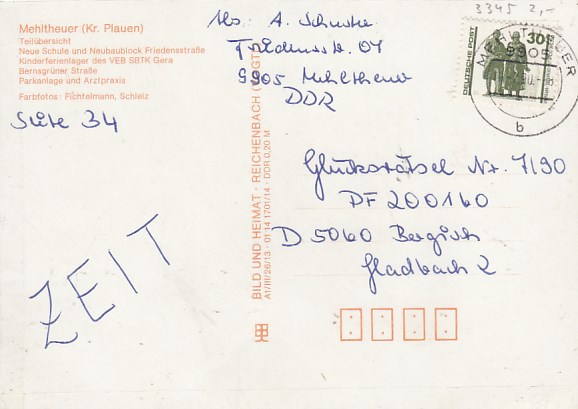 Mehltheuer (Kr. Plauen)
Teilübersicht
Neue Schule und Neubaublock Friedensstraße
Kinderferienlager des VEB SBTK Gera
Bernsgrüner Straße
Parkanlage und Arztpraxis
Farbfotos: Fichtelmann, Schleiz
Seite 34
ZEIT
Abs. A. Schuster
Friedensstr. 07
9905 Mehltheuer
DDR
3345 2,-
30
DEUTSCHE POST
9905
b
BILD UND HEIMAT · REICHENBACH (VOGTL)
A1/III/26/13 · 01 14 1701/14 · DDR 0,20 M
Glücksrätsel Nr. 7/90
PF 200140
D 5060 Bergisch
Gladbach 2